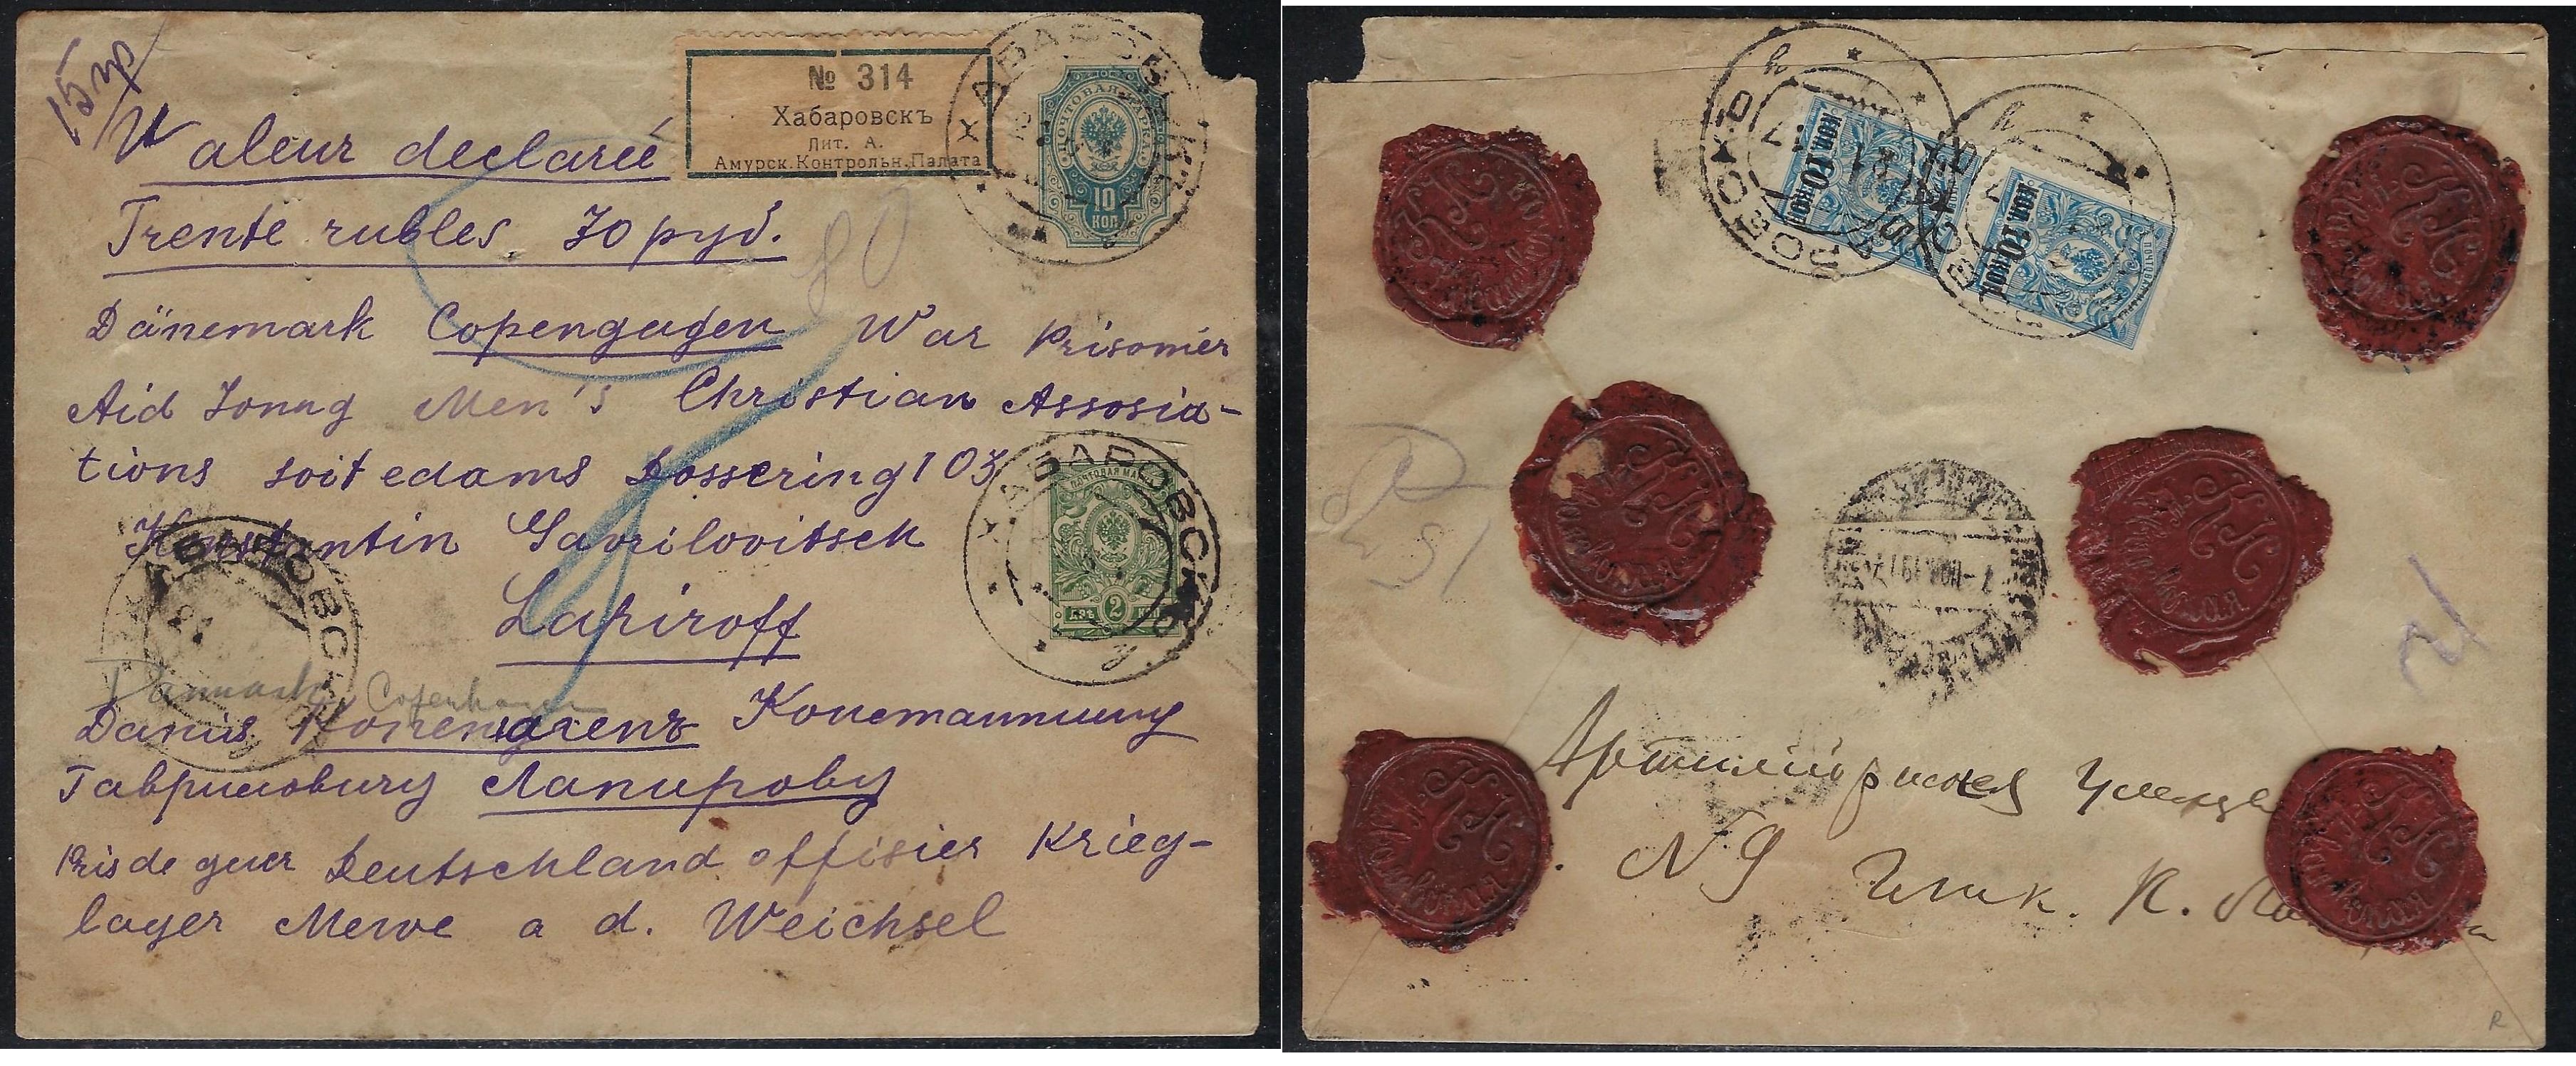 15 гр
№ 314
Хабаровскъ
Лит. А.
Амурск.Контрольн.Палата
ХАБАРОВСКЪ
ПОЧТОВАЯ МАРКА
10
КОП
Waleur declareé
Trente rubles 30 руб.
Dänemark Copengagen War Prisonier
Aid Joung Men's Christian Assosia-
tions soitedams Dossering 103
Konstantin Gavrilovitsch
Lapiroff
ХАБАРОВСКЪ
ПОЧТОВАЯ МАРКА
2
КОП
ХАБАРОВСКЪ
Danmark Copenhagen
Danis Копенгагенъ Константину
Гавриловичу Лапирову
Pris de guer Deutschland offisier Krieg-
lager Mewe a d. Weichsel
80
коп 10 коп
коп 10 коп
Артиллерійская
N 9 К.